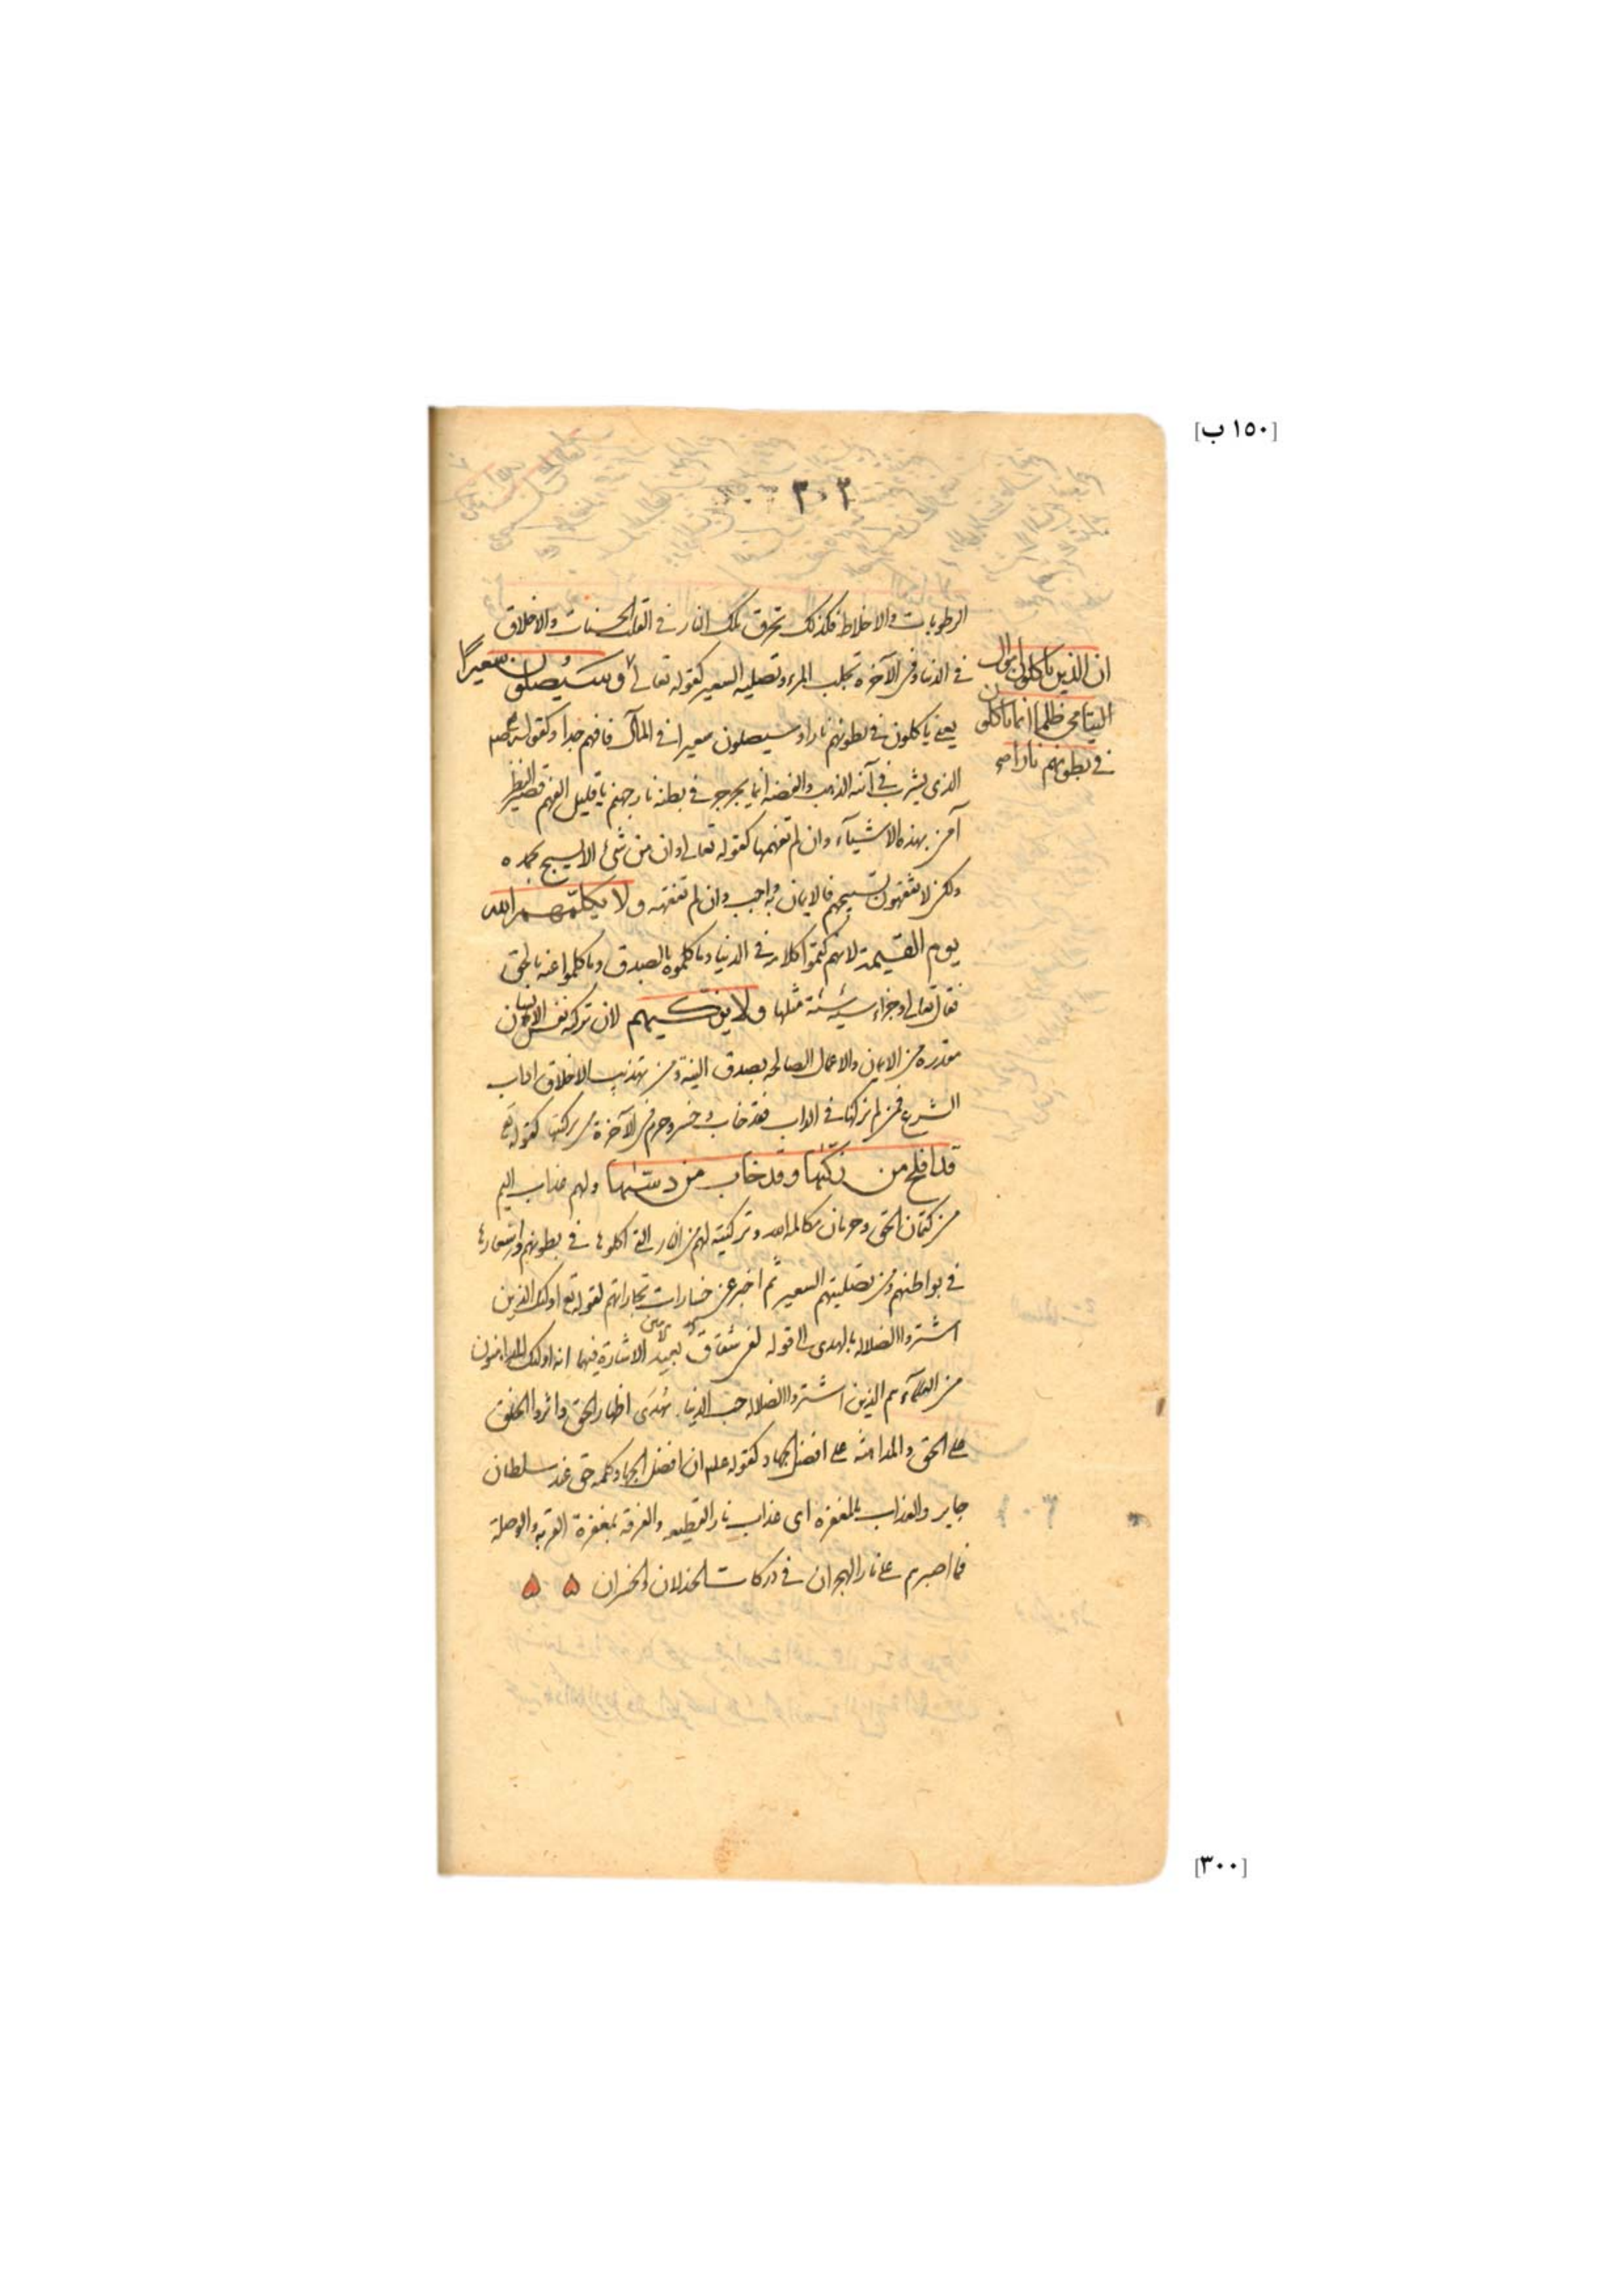 [١٥٠ ب]
٣٠٣
الرطوبات والاخلاط فكذلك تحرق تلك النار في القلب الحسنات والاخلاق
في الدنيا وفي الآخرة تجلب المرء وتصليه السعير كقوله تعالى وسيصلون سعيرا
ان الذين ياكلون اموال
اليتامى ظلما انما ياكلون
في بطونهم نارا صح
يعني ياكلون في بطونهم نارا وسيصلون سعيرا في المآل فافهم جدا وكقوله صلعم
الذي يشرب في آنية الذهب والفضه انما يجرجر في بطنه نار جهنم يا قليل الفهم قصير النظر
آمن بهذه الاشيآء وان لم تفهمها كقوله تعالى وان من شئ الا يسبح بحمده
ولكن لا تفقهون تسبيحهم فالايمان به واجب وان لم تفقهه ولا يكلمهم الله
يوم القيمة لانهم كتموا كلامه في الدنيا وما كلموه بالصدق وما كلموا عنه بالحق
فقال تعالى وجزاء سيئة سيئة مثلها ولا يزكيهم لان تزكية نفس الانسان
مقدره من الايمان والاعمال الصالحه بصدق النية ومن تهذيب الاخلاق اداب
الشرع فمن لم يزكها في الداب فقد خاب وخسر وحرم في الآخرة من تزكيتها كقوله تع
قد افلح من زكيها وقد خاب من دسيها ولهم عذاب اليم
من كتمان الحق وحرمان مكالمة الله وتزكيته لهم من النار التي اكلوها في بطونهم واستعارها
في بواطنهم ومن تصليتهم السعير ثم اخبر عن خسارات تجاراتهم لقوله تع اولئك الذين
اشتروا الضلالة بالهدى الى قوله لفي شقاق بعيد الاشارة فيهما ان اولئك المداهنون
من العلمآء هم الذين اشتروا الضلاله حب الدنيا بهدى اظهار الحق واثروا الخلق
على الحق والمداهنة على افضل الجهاد كقوله علم ان افضل الجهاد كلمة حق عند سلطان
جاير والعذاب بالمغفرة اى عذاب نار القطيعه والفرقه بمغفرة القربة والوصلة
فما اصبرهم على نار الهجران في دركات الخذلان والخسران
[٣٠٠]